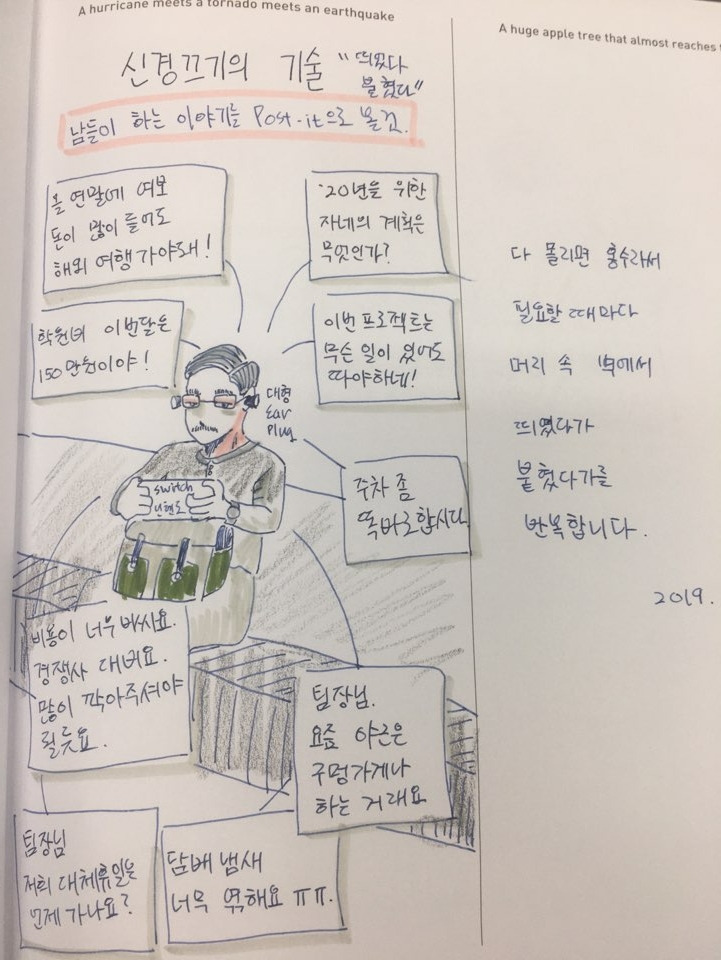 A hurricane meets a tornado meets an earthquake
A huge apple tree that almost reaches
신경끄기의 기술 "띄었다
붙혔다"
남들이 하는 이야기를 Post-it으로 볼것.
올 연말에 여보
돈이 많이 들어도
해외 여행 가야돼!
'20년을 위한
자네의 계획은
무엇인가?
학원비 이번달은
150만원이야!
이번 프로젝트는
무슨 일이 있어도
따야하네!
대형
Ear
Plug
switch
주차 좀
똑바로합시다
비용이 너무 비싸요.
경쟁사 대비요.
많이 깍아주셔야
될듯요.
팀장님.
요즘 야근은
구멍가게나
하는 거래요
팀장님
저희 대체휴일은
언제 가나요?
담배 냄새
너무 역해요 ㅠㅠ.
다 몰리면 홍수라서
필요할 때마다
머리 속 벽에서
띄였다가
붙혔다가를
반복합니다.
2019.